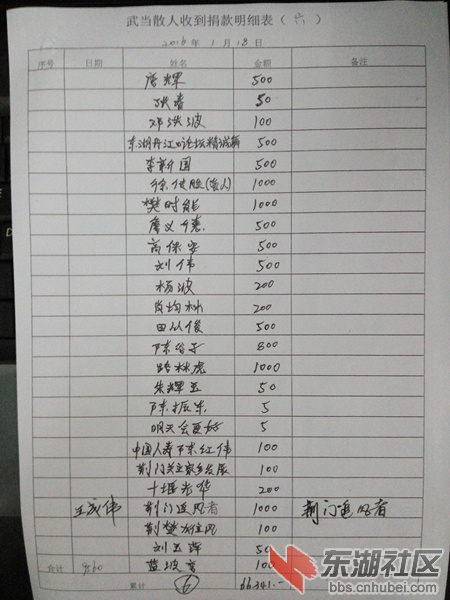 武当散人收到捐款明细表（六）
2016年1月18日
序号 日期 姓名 金额 备注
唐辉 500
张春 50
邓洪波 100
东湖丹江口论坛精诚 500
李新国 500
1000
樊时能 1000
唐义 500
高保安 500
刘伟 500
杨波 200
肖均林 200
田从俊 500
陈谷子 800
路林虎 1000
朱辉玉 50
陈振东 5
明天会更好 5
中国人寿陈红伟 100
荆门关注家乡发展 100
十堰光华 200
王成伟 荆门追风者 1000 荆门追风者
荆楚 100
刘玉萍 50
蓝波湾 100
合计 9560
累计 ⑥ 66341.-
东湖社区
bbs.cnhubei.com